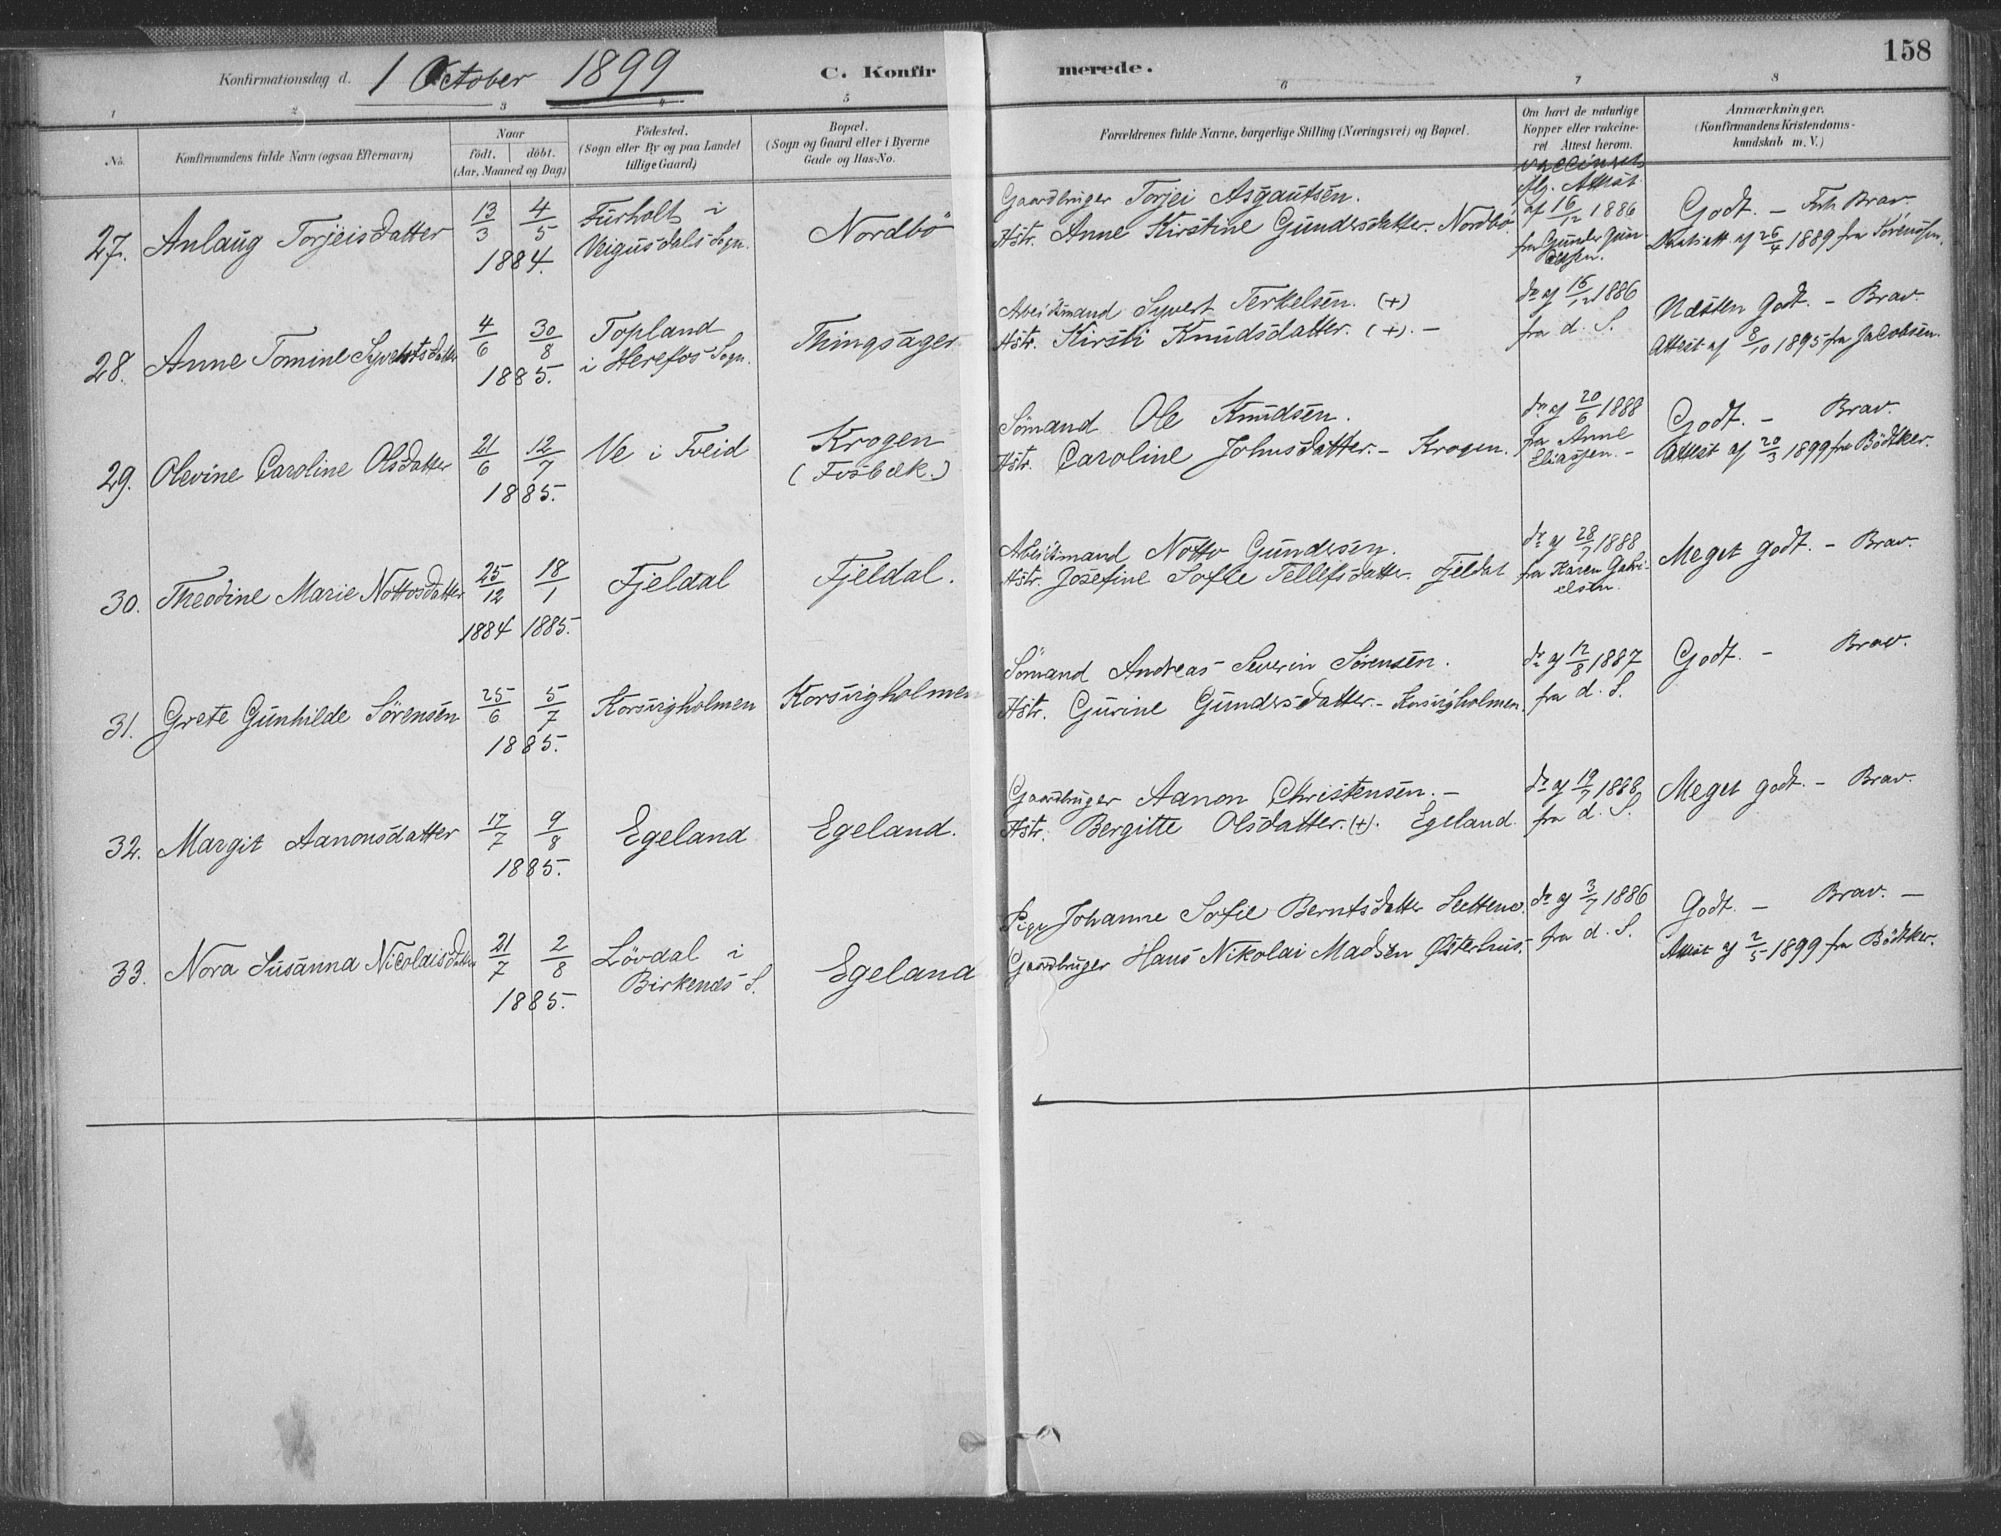 Konfirmationsdag d. 1 October 1899 C. Konfirmerede. 158
1 2 3 4 5 6 7 8
No. Konfirmandens fulde Navn (ogsaa Efternavn) Naar født, døbt. (Aar, Maaned og Dag) Födested. (Sogn eller By og paa Landet tillige Gaard) Bopæl. (Sogn og Gaard eller i Byerne Gade og Hus-No. Forældrenes fulde Navne, borgerlige Stilling (Næringsvei) og Bopæl. Om havt de naturlige Kopper eller vakcineret. Attest herom. Anmærkninger. (Konfirmandens Kristendomskundskab m. V.)
27. Anlaug Torjeisdatter 13/3 4/5 1884. Furholt i Veigusdals Sogn. Nordbö
Gaardbruger Torjei Asgautsen.
Hstr. Anne Kirstine Gundersdatter. Nordbö.
Attest af 16/12 1886 fra Gunder
Godt. – Brav.
af 26/4 1889 fra Sørenssen.
28. Anne Tomine Syvertsdatter 4/6 30/8 1885. Topland i Herefos Sogn. Thingsager
Arbeidsmand Syvert Terkelsen. (+)
Hstr. Kirsti Knudsdatter. (+). –
do af 16/12 1886 fra d. S.
Næsten Godt. – Brav.
Attest af 8/10 1895 fra Jacobsen.
29. Olevine Caroline Olsdatter 21/6 12/7 1885. Ve i Tveid Krogen (Fosbæk.)
Sömand Ole Knudsen.
Hstr. Caroline Johnsdatter. – Krogen.
do af 20/6 1888 fra Anne Eliassen. –
Godt. – Brav.
Attest af 20/3 1899 fra Bödtker.
30. Theodine Marie Nottosdatter 25/12 1884 18/1 1885. Fjeldal Fjeldal.
Arbeidsmand Notto Gundersen.
Hstr. Josefine Sofie Tellefsdatter. Fjeldal
do af 28/7 1888 fra Karen Gabrielsen.
Meget godt. – Brav.
31. Grete Gunhilde Sørensen 25/6 5/7 1885. Korsvigholmen Korsvigholmen
Sömand Andreas Severin Sørensen.
Hstr. Gurine Gundersdatter. – Korsvigholmen.
do af 12/8 1887 fra d. S.
Godt. – Brav.
32. Margit Aanonsdatter 17/7 9/8 1885. Egeland Egeland.
Gaardbruger Aanon Christensen. –
Hstr. Bergitte Olsdatter. (+). Egeland
do af 19/7 1888 fra d. S.
Meget godt. – Brav.
33. Nora Susanna Nicolaisdatter 21/7 2/8 1885. Lövdal i Birkenæs S. Egeland
Pige Johanne Sofie Berntsdatter
Gaardbruger Hans Nikolai Madsen Østerhus.
do af 3/7 1886 fra d. S.
Godt. – Brav. –
Attest af 2/5 1899 fra Bödtker.